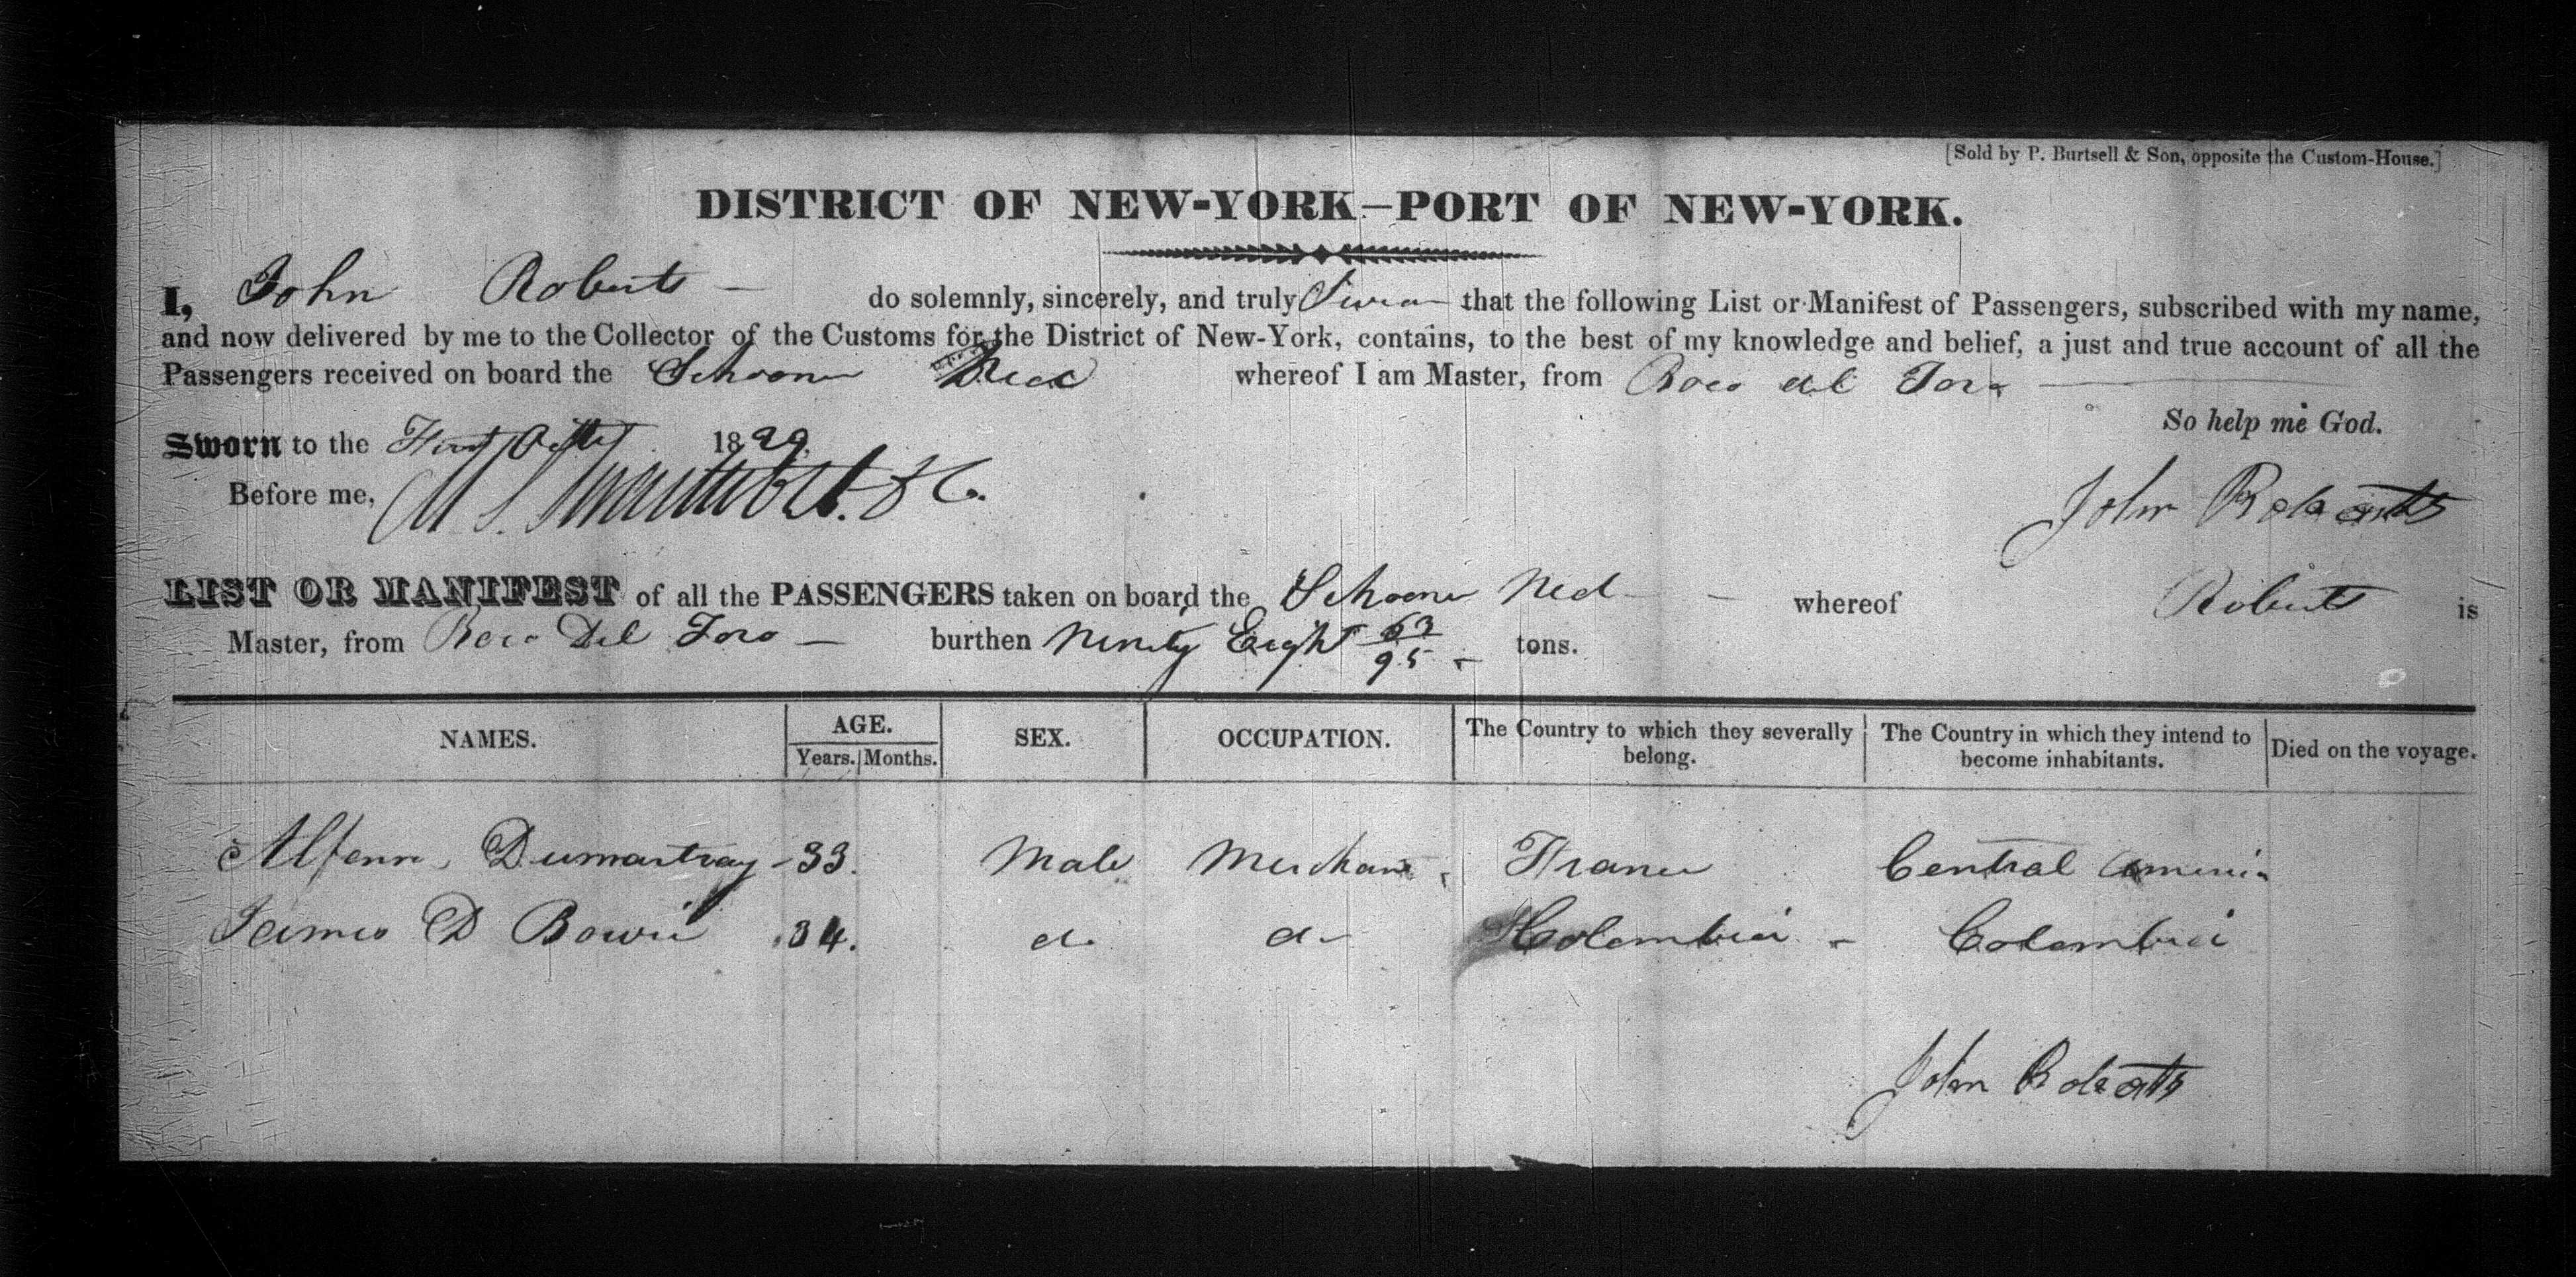 [Sold by P. Burtsell & Son, opposite the Custom-House.]
DISTRICT OF NEW-YORK—PORT OF NEW-YORK.
I, John Roberts — do solemnly, sincerely, and truly Swear that the following List or Manifest of Passengers, subscribed with my name,
and now delivered by me to the Collector of the Customs for the District of New-York, contains, to the best of my knowledge and belief, a just and true account of all the
Passengers received on board the Schooner Ned whereof I am Master, from Boco del Toro —
So help me God.
Sworn to the First 1829.
Before me,
John Roberts
LIST OR MANIFEST of all the PASSENGERS taken on board the Schooner Ned — whereof Roberts is
Master, from Boco Del Toro — burthen Ninety Eight 63/95 tons.
NAMES. AGE. Years. Months. SEX. OCCUPATION. The Country to which they severally belong. The Country in which they intend to become inhabitants. Died on the voyage.
Dumartray - 33. Male Merchant France Central America
James D Bowie 34. do do Colombia - Colombia
John Roberts